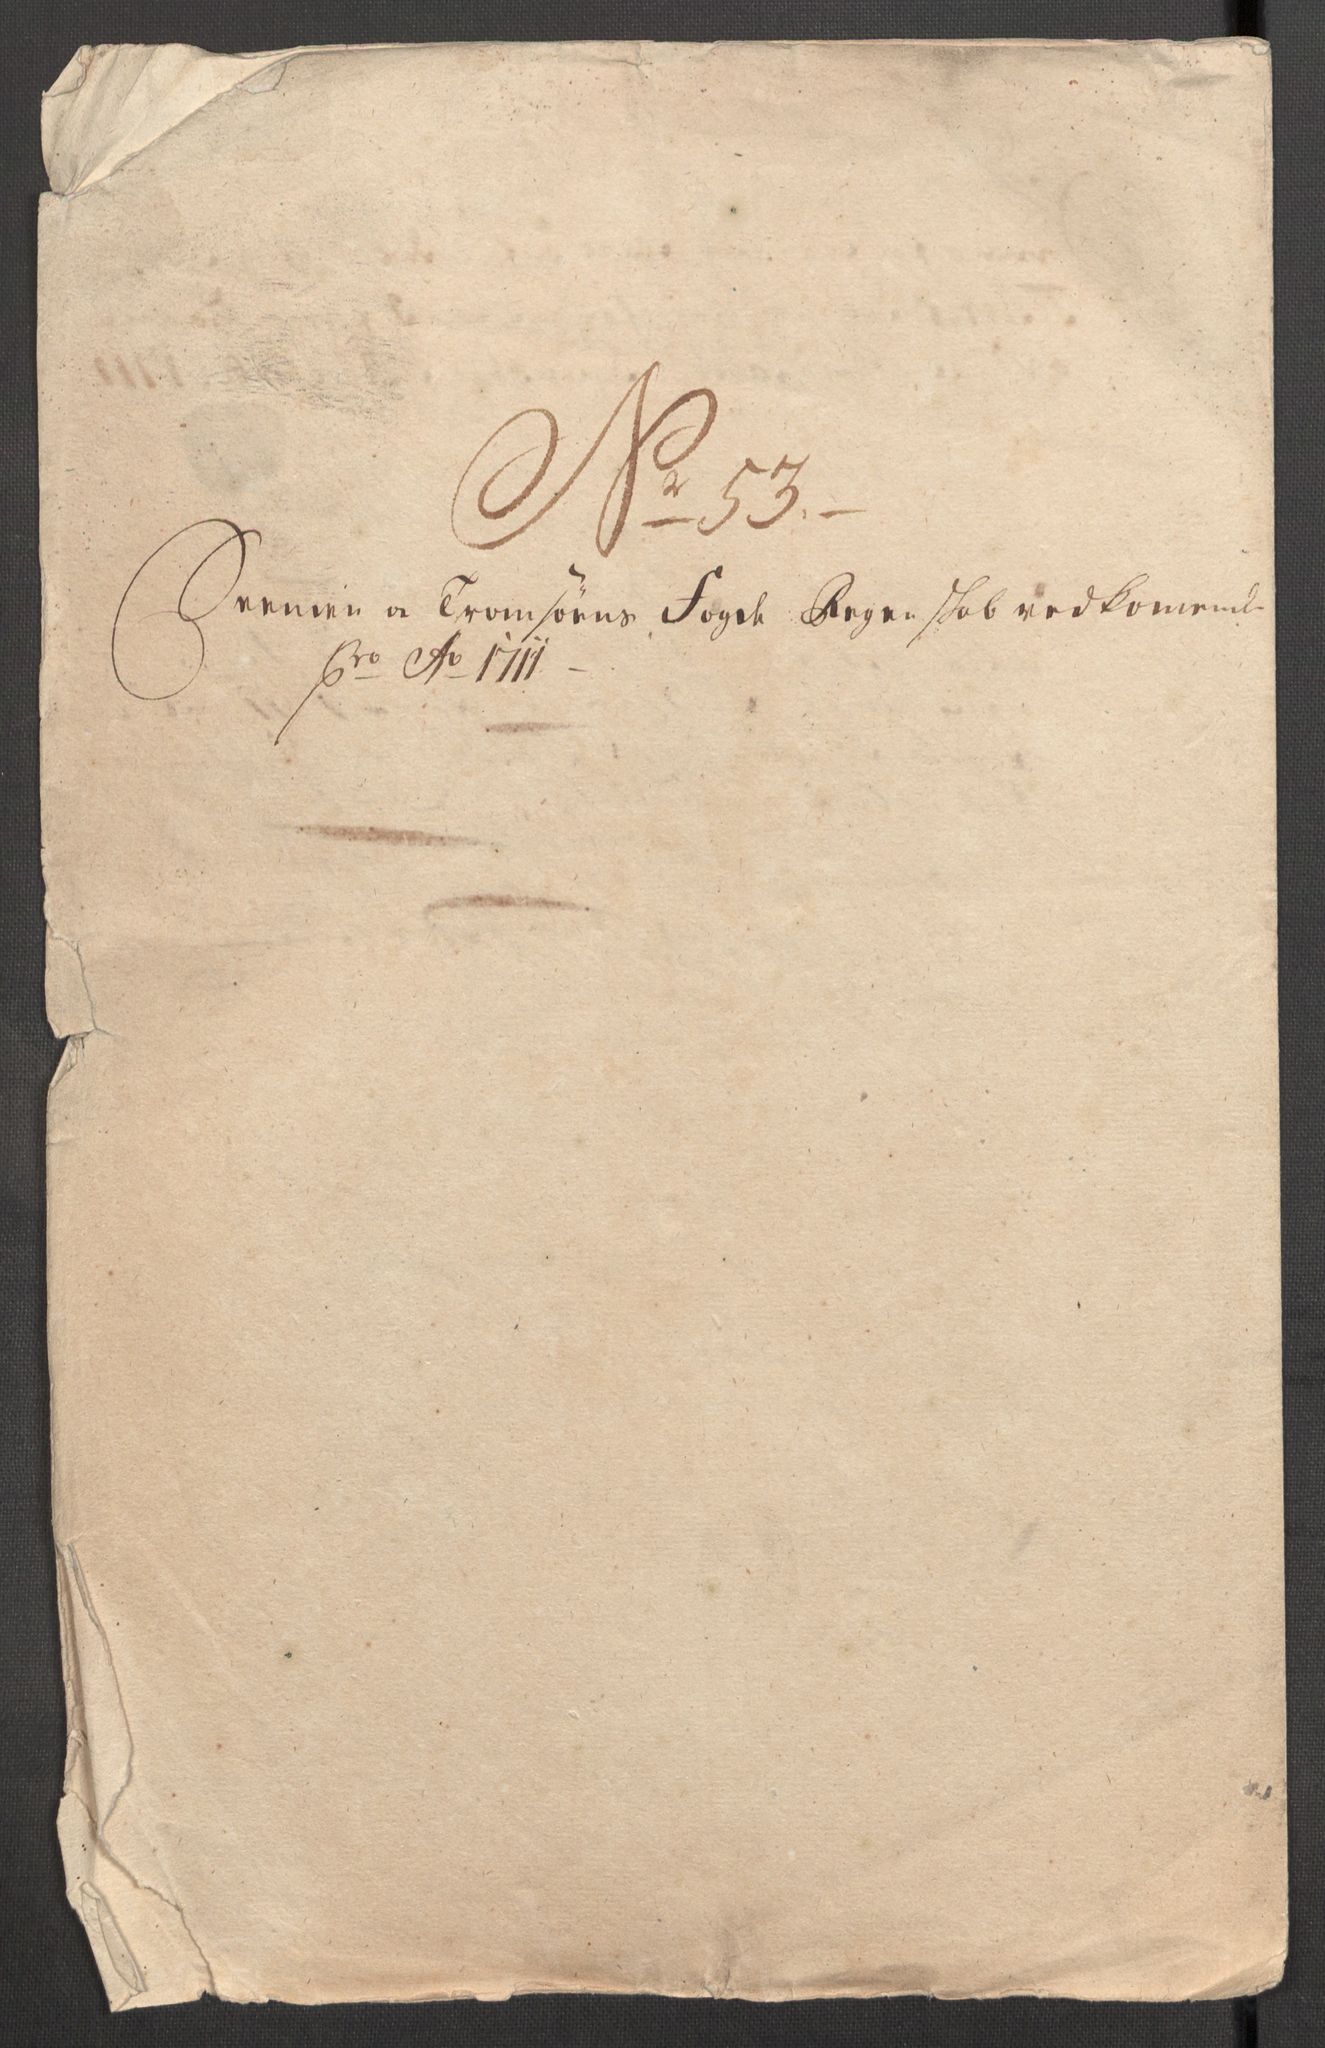 Nr 53.
Seenien och Tromsøens Fogde Regenskab vedkomende
pro Ao 1711